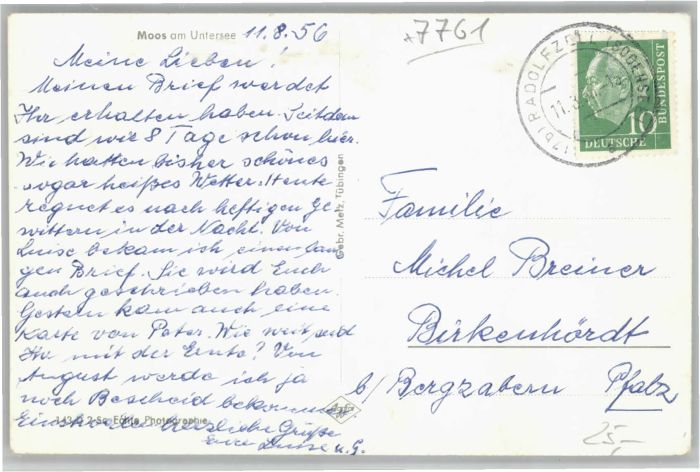 Moos am Untersee 11.8.56
Meine Lieben!
Meinen Brief werdet
Ihr erhalten haben. Seitdem
sind wir 8 Tage schon hier.
Wir hatten bisher schönes
sogar heißes Wetter. Heute
regnet es nach heftigen Ge-
wittern in der Nacht. Von
Luise bekam ich einen lan-
gen Brief. Sie wird Euch
auch geschrieben haben.
Gestern kam auch eine
Karte von Peter. Wie weit seid
Ihr mit der Ernte? Von
August werde ich ja
noch Bescheid bekommen.
herzliche Grüße
Eure Luise u. G.
Echte Photographie
Gebr. Metz, Tübingen
7761
(17b) RADOLFZELL (BODENSEE)
11.8.56
DEUTSCHE
BUNDESPOST
10
Familie
Michel Breiner
Birkenhördt
b/ Bergzabern Pfalz
25,-